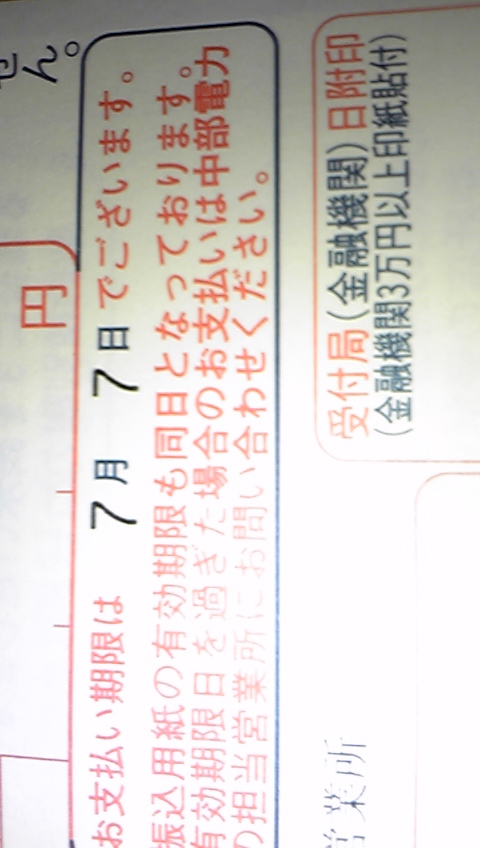 せん。
円
お支払い期限は 7月 7日でございます。
振込用紙の有効期限も同日となっております。
有効期限日を過ぎた場合のお支払いは中部電力
の担当営業所にお問い合わせください。
受付局(金融機関)日附印
(金融機関3万円以上印紙貼付)
営業所